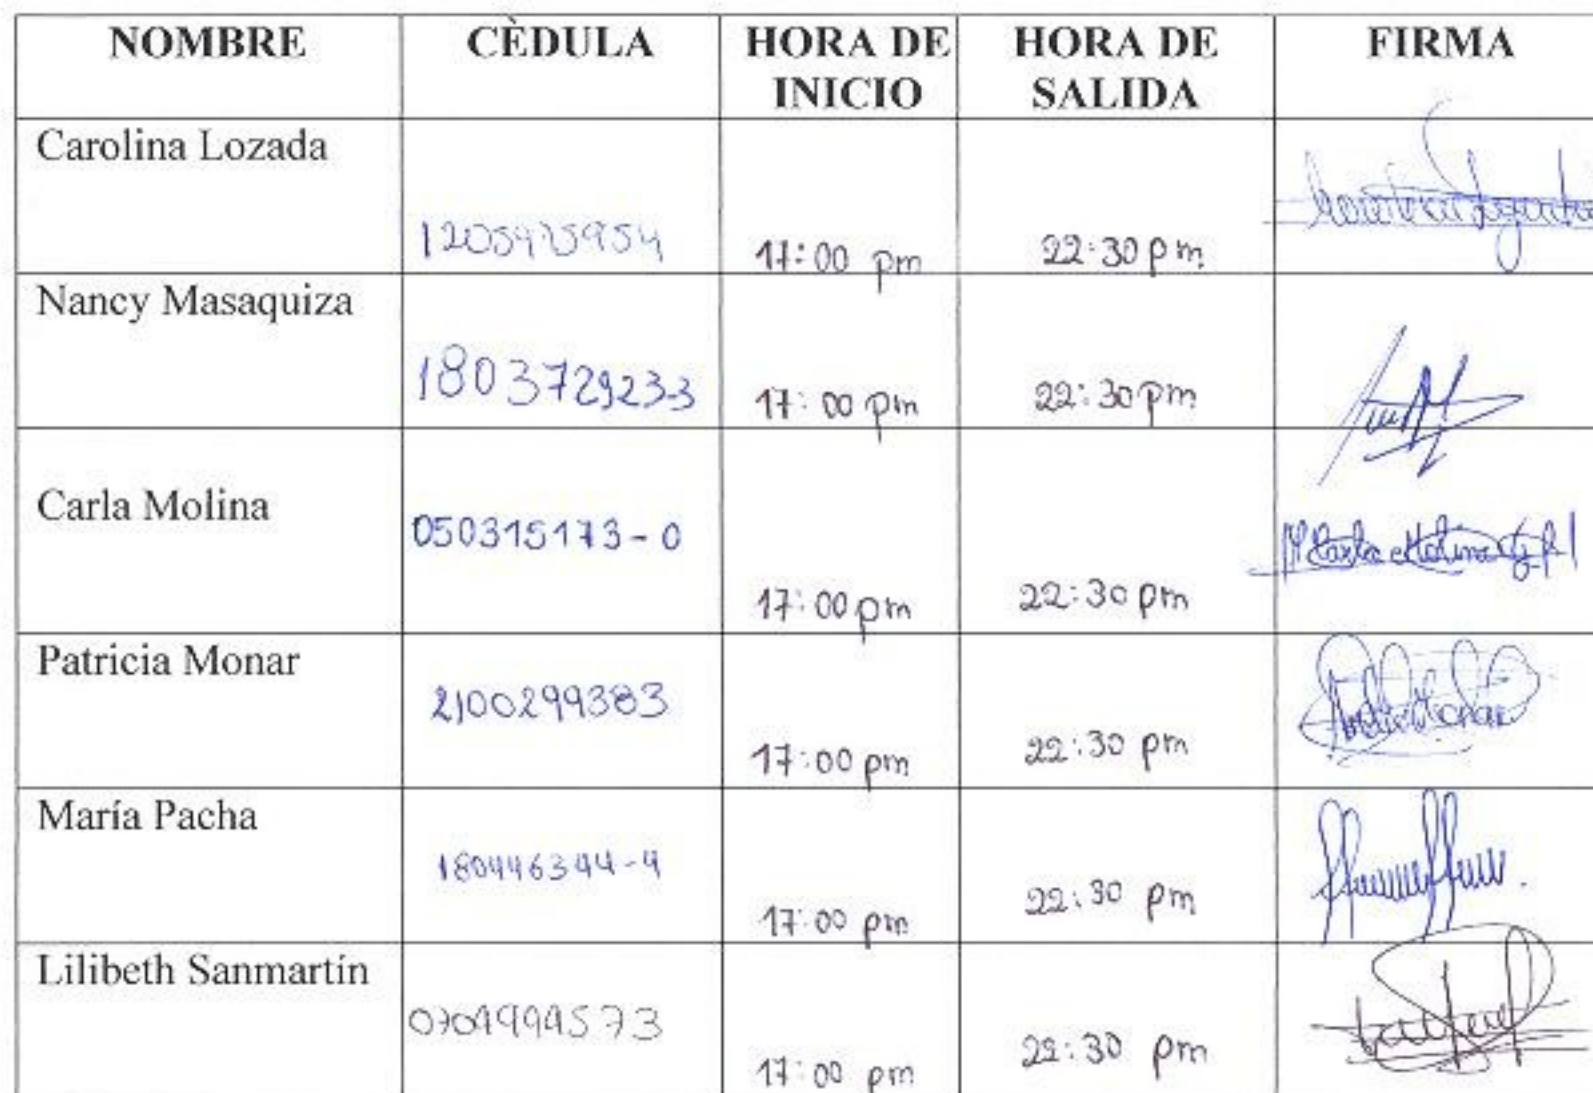 NOMBRE CÈDULA HORA DE INICIO HORA DE SALIDA FIRMA
Carolina Lozada 17:00 pm 22:30 pm
Nancy Masaquiza 180372923-3 17:00 pm 22:30 pm
Carla Molina 050315173-0 17:00 pm 22:30 pm
Patricia Monar 2100299383 17:00 pm 22:30 pm
María Pacha 180446344-4 17:00 pm 22:30 pm
Lilibeth Sanmartín 17:00 pm 22:30 pm